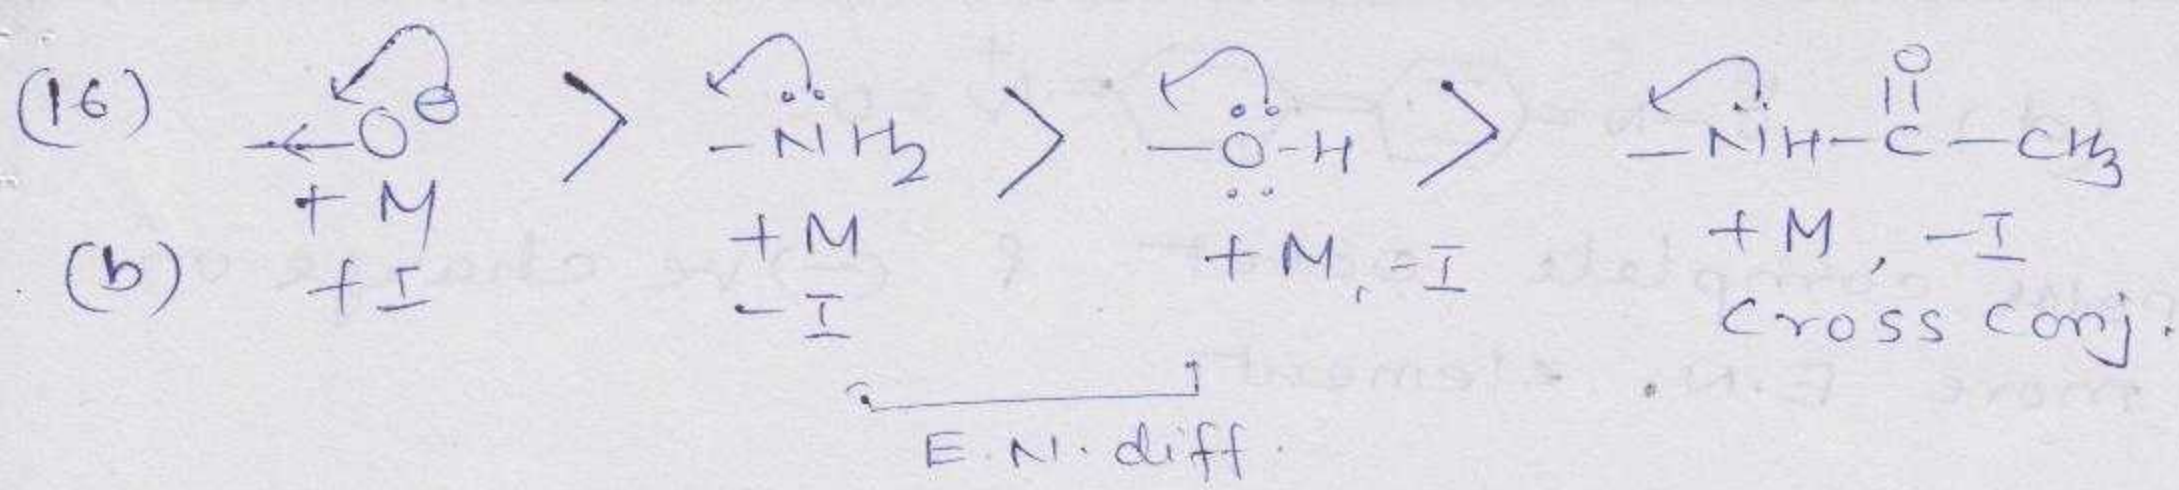 (16) –O⊖ > –N̈H₂ > –Ö–H > –N̈H–C(=O)–CH₃
+M +M +M, –I +M, –I
(b) +I –I Cross Conj.
E.N. diff.